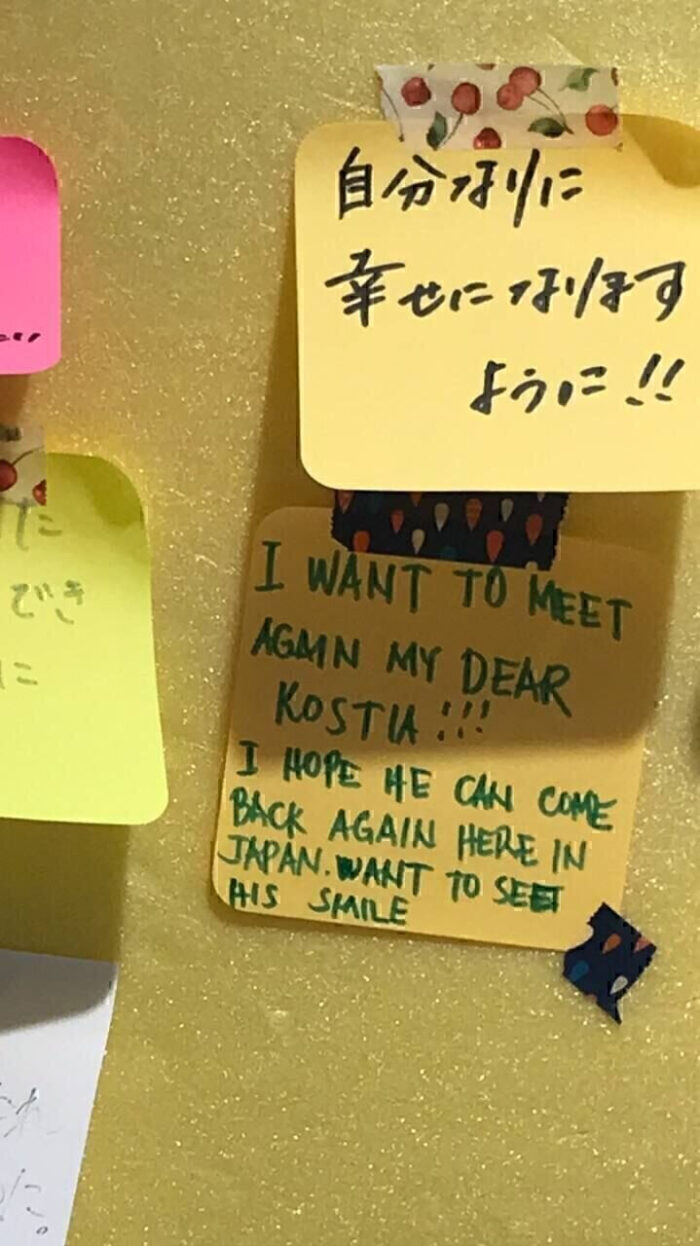 自分なりに
幸せになります
ように!!
I WANT TO MEET
AGAIN MY DEAR
KOSTIA!!!
I HOPE HE CAN COME
BACK AGAIN HERE IN
JAPAN. WANT TO SEE
HIS SMILE
でき
に